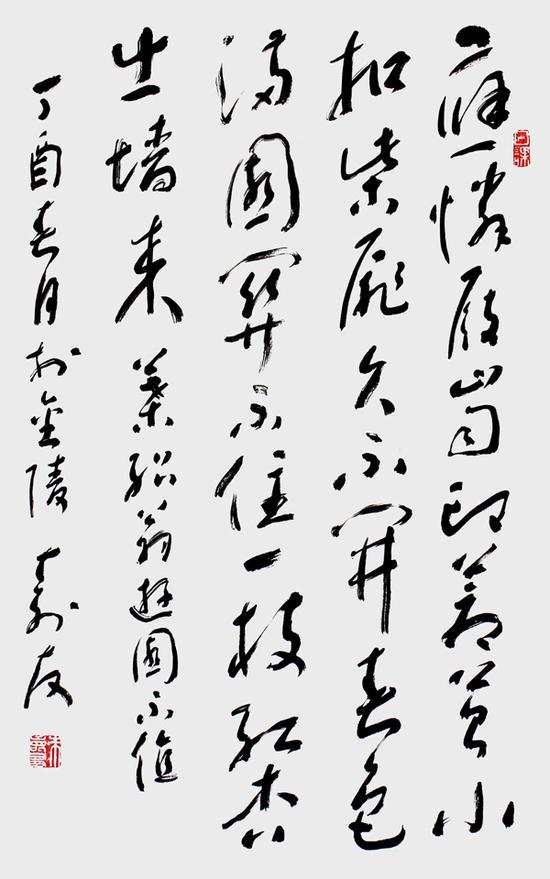 應憐屐齒印蒼苔小
扣柴扉久不開春色
滿園關不住一枝紅杏
出墙来 葉紹翁遊園不值
丁酉春月於金陵 友